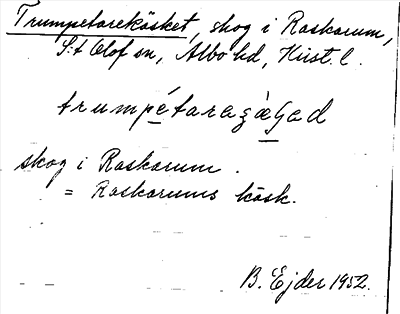 Trumpetarekösket, skog i Raskarum,
S:t Olof sn, Albo hd, Krist. l.
trumpétaragàʂad
skog i Raskarum.
= Raskarums kösk.
B. Ejder 1952.